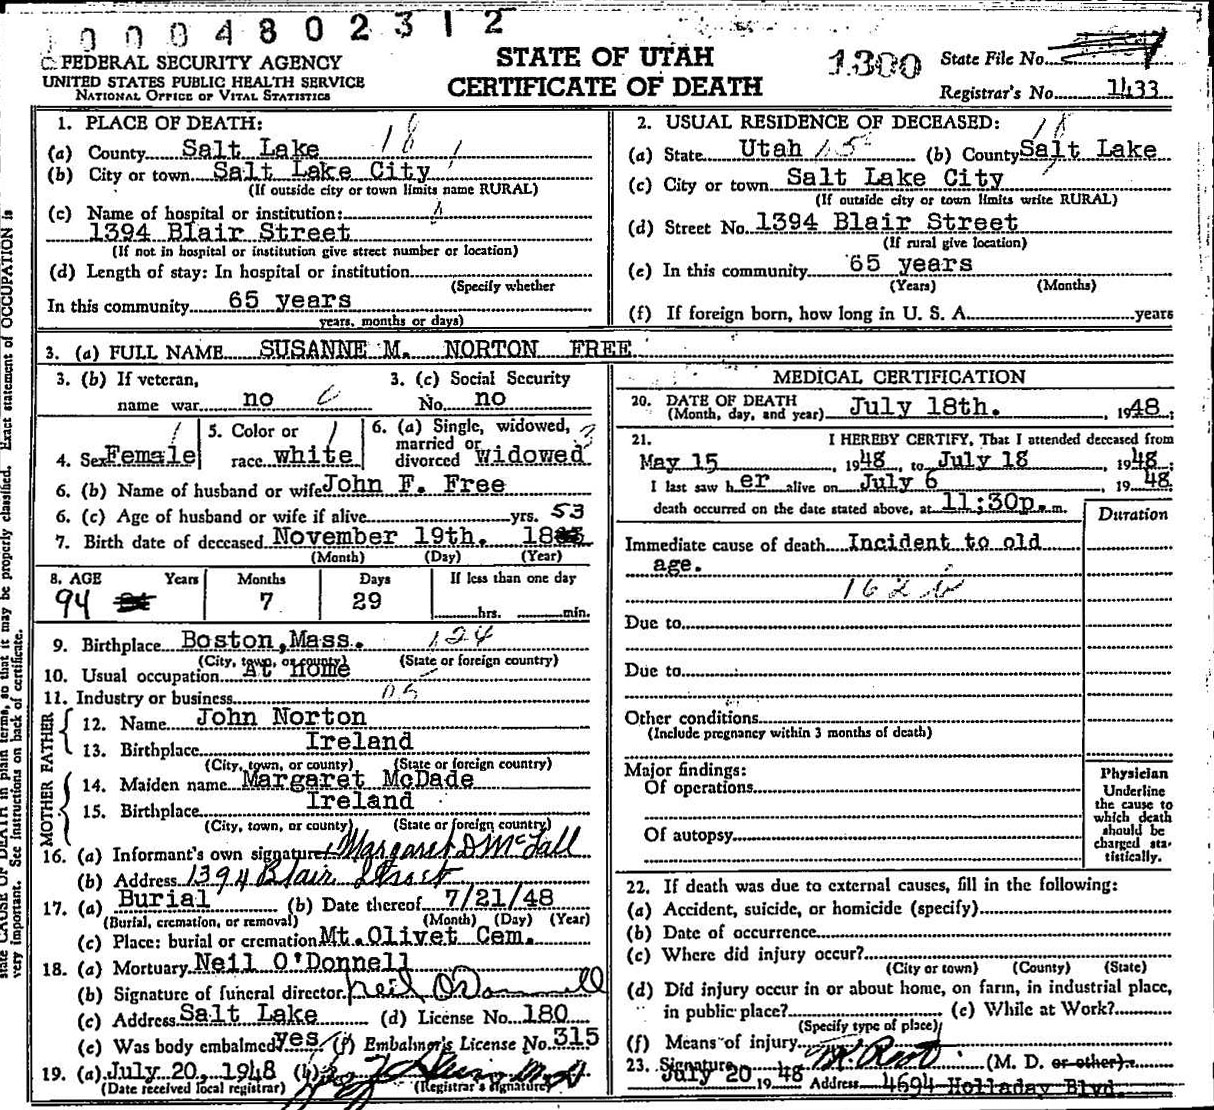 0004802312
FEDERAL SECURITY AGENCY
UNITED STATES PUBLIC HEALTH SERVICE
NATIONAL OFFICE OF VITAL STATISTICS
STATE OF UTAH
CERTIFICATE OF DEATH
1300
State File No.
Registrar's No. 1433
1. PLACE OF DEATH:
(a) County Salt Lake 18 1
(b) City or town Salt Lake City
(If outside city or town limits name RURAL)
(c) Name of hospital or institution:
1394 Blair Street
(If not in hospital or institution give street number or location)
(d) Length of stay: In hospital or institution
(Specify whether
In this community 65 years
years, months or days)
2. USUAL RESIDENCE OF DECEASED:
18
(a) State Utah 15 (b) County Salt Lake
(c) City or town Salt Lake City
(If outside city or town limits write RURAL)
(d) Street No. 1394 Blair Street
(If rural give location)
(e) In this community 65 years
(Years) (Months)
(f) If foreign born, how long in U. S. A. years
3. (a) FULL NAME SUSANNE M. NORTON FREE
3. (b) If veteran,
name war no
3. (c) Social Security
No. no
4. Sex Female
5. Color or
race white
6. (a) Single, widowed,
married or
divorced widowed
6. (b) Name of husband or wife John F. Free
6. (c) Age of husband or wife if alive yrs.
7. Birth date of deceased November 19th. 18 53
(Month) (Day) (Year)
8. AGE Years Months Days If less than one day
94 7 29 hrs. min.
9. Birthplace Boston, Mass. 124
(City, town, or county) (State or foreign country)
10. Usual occupation At Home
11. Industry or business
FATHER
12. Name John Norton
13. Birthplace Ireland
(City, town, or county) (State or foreign country)
MOTHER
14. Maiden name Margaret McDade
15. Birthplace Ireland
(City, town, or county) (State or foreign country)
16. (a) Informant's own signature Margaret D McFall
(b) Address 1394 Blair Street
17. (a) Burial (b) Date thereof 7/21/48
(Burial, cremation, or removal) (Month) (Day) (Year)
(c) Place: burial or cremation Mt. Olivet Cem.
18. (a) Mortuary Neil O'Donnell
(b) Signature of funeral director Neil O'Donnell
(c) Address Salt Lake (d) License No. 180
(e) Was body embalmed? yes (f) Embalmer's License No. 315
19. (a) July 20, 1948 (b)
(Date received local registrar) (Registrar's signature)
MEDICAL CERTIFICATION
20. DATE OF DEATH
(Month, day, and year) July 18th. , 1948;
21. I HEREBY CERTIFY, That I attended deceased from
May 15 , 1948, to July 18 , 1948;
I last saw her alive on July 6 , 1948;
death occurred on the date stated above, at 11;30p. m.
Duration
Immediate cause of death Incident to old
age.
162 b
Due to
Due to
Other conditions
(Include pregnancy within 3 months of death)
Major findings:
Of operations
Of autopsy
Physician
Underline
the cause to
which death
should be
charged sta-
tistically.
22. If death was due to external causes, fill in the following:
(a) Accident, suicide, or homicide (specify)
(b) Date of occurrence
(c) Where did injury occur?
(City or town) (County) (State)
(d) Did injury occur in or about home, on farm, in industrial place,
in public place? (e) While at Work?
(Specify type of place)
(f) Means of injury
23. Signature (M. D. or other)
July 20 1948 Address 4694 Holladay Blvd.
state CAUSE OF DEATH in plain terms, so that it may be properly classified. Exact statement of OCCUPATION is
very important. See instructions on back of certificate.